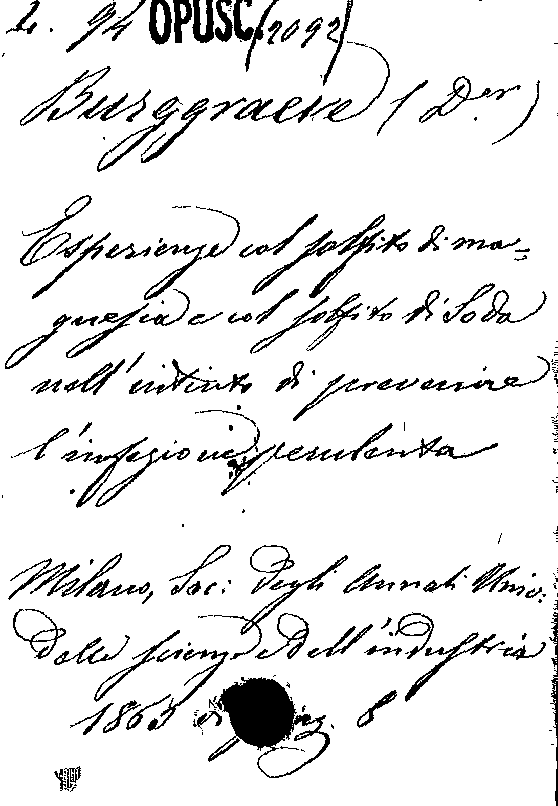 L. 94 OPUSC. (2092)
Burggraeve (Der)
Esperienze col solfito di ma=
gnesia e col solfito di Soda
nell'intento di prevenire
l'infezione purulenta
Milano, Soc: degli Annali Univ:
delle scienze e dell'industria
1863 di pag. 8